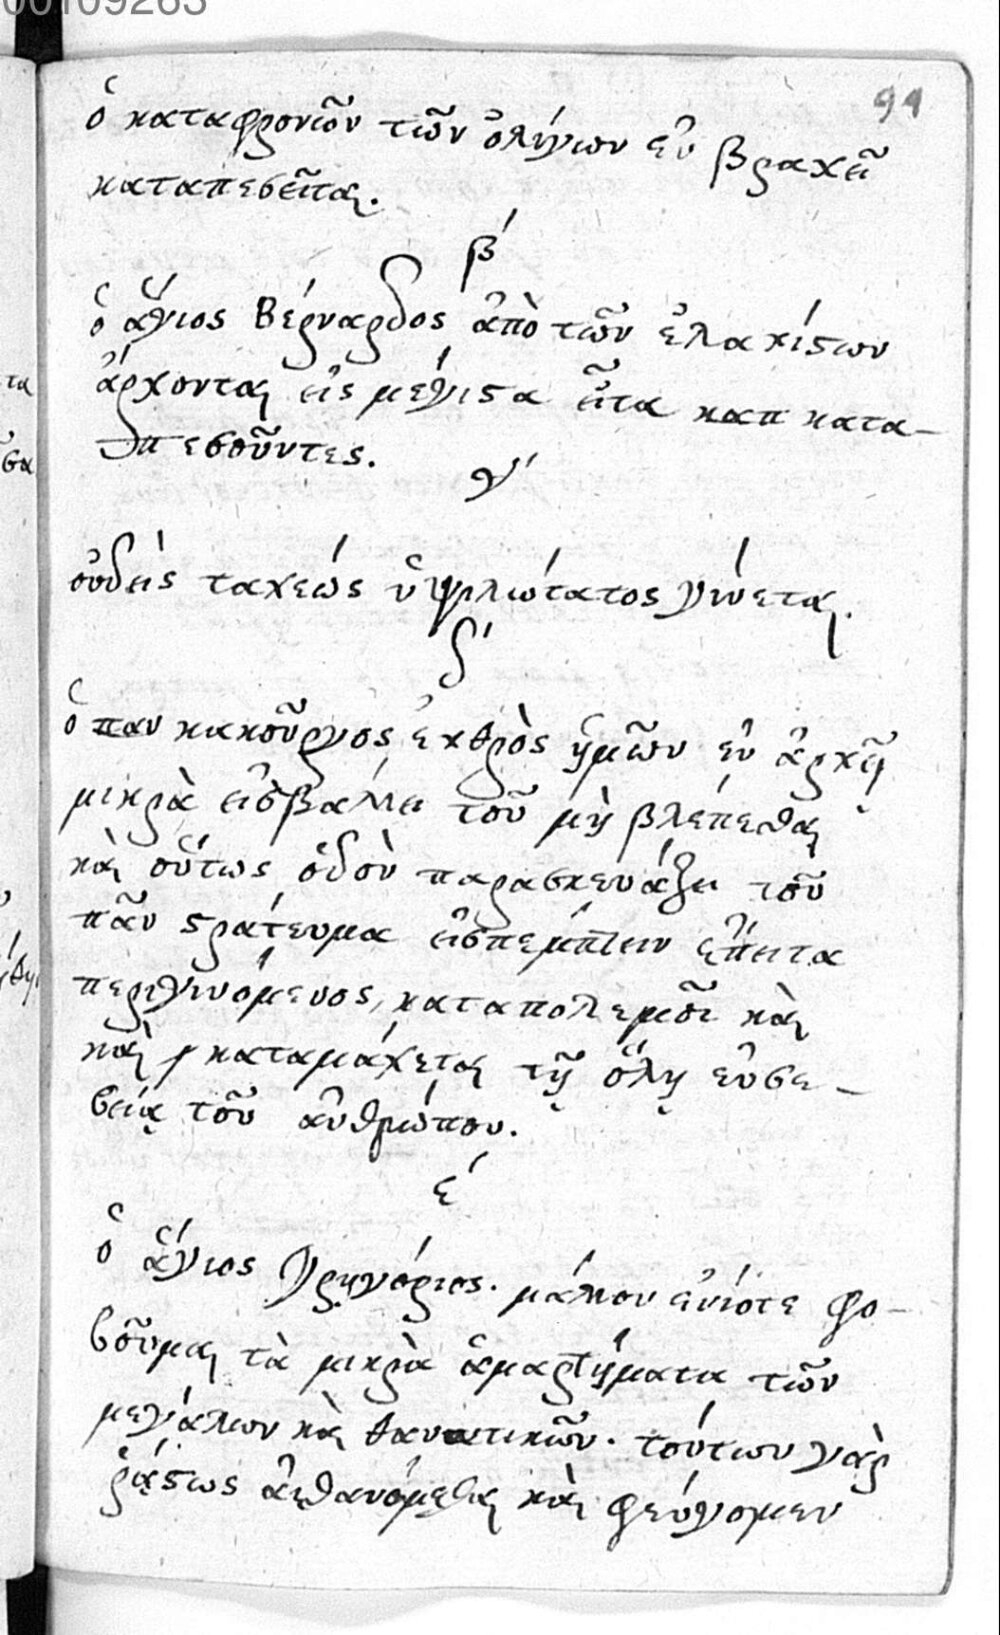 00109263
91
ὁ καταφρονῶν τῶν ὀλίγων ἐν βραχεῖ
καταπεσεῖται.
β΄
ὁ ἅγιος Βέρναρδος ἀπὸ τῶν ἐλαχίστων
ἄρχονται εἰς μέγιστα εἶτα καπ κατα-
πεσοῦντες.
γ΄
οὐδεὶς ταχέως ὑψιλώτατος γίνεται.
δ΄
ὁ παν κακοῦργος ἐχθρὸς ἡμῶν ἐν ἀρχῇ
μικρὰ εἰσβάλλει τοῦ μὴ βλέπεσθαι
καὶ οὕτως ὁδὸν παρασκευάζει τοῦ
πᾶν στράτευμα εἰσπέμπειν ἔπειτα
περιγινόμενος, καταπολεμεῖ καὶ
καὶ καταμάχεται τῇ ὅλῃ εὐσε-
βείᾳ τοῦ ἀνθρώπου.
ε΄
ὁ ἅγιος Γρηγόριος. μᾶλλον ἐνίοτε φο-
βοῦμαι τὰ μικρὰ ἁμαρτήματα τῶν
μεγάλων καὶ θανατικῶν. τούτων γὰρ
ῥᾴστως αἰσθανόμεθα καὶ φεύγομεν